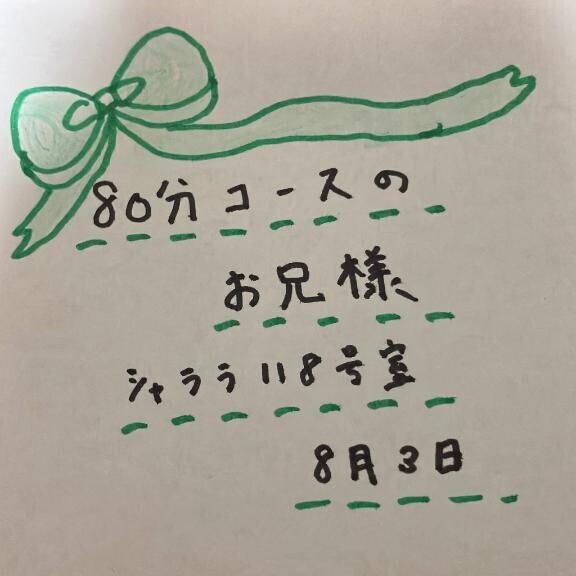 80分コースの
お兄様
シャララ118号室
8月3日